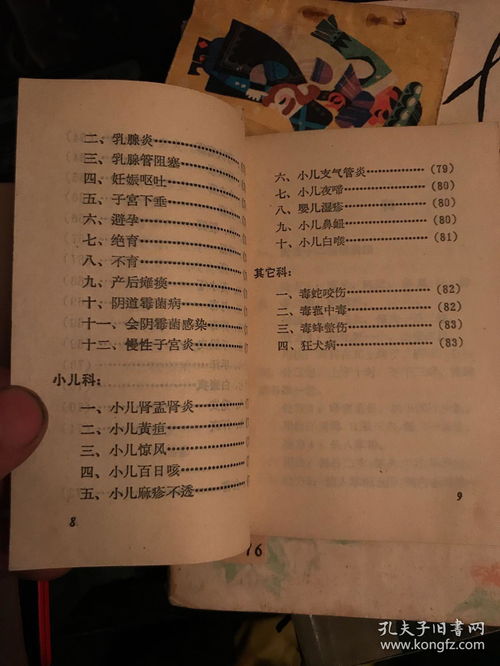 二、乳腺炎
三、乳腺管阻塞
四、妊娠呕吐
五、子宫下垂
六、避孕
七、绝育
八、不育
九、产后瘫痪
十、阴道霉菌病
十一、会阴霉菌感染
十二、慢性子宫炎
小儿科：
一、小儿肾盂肾炎
二、小儿黄疸
三、小儿惊风
四、小儿百日咳
五、小儿麻疹不透
8
六、小儿支气管炎……………(79)
七、小儿夜啼……………(80)
八、婴儿湿疹……………(80)
九、小儿鼻衄……………(80)
十、小儿白喉……………(81)
其它科：
一、毒蛇咬伤……………(82)
二、毒菰中毒……………(82)
三、毒蜂螫伤……………(83)
四、狂犬病……………(83)
9
76
孔夫子旧书网
www.kongfz.com